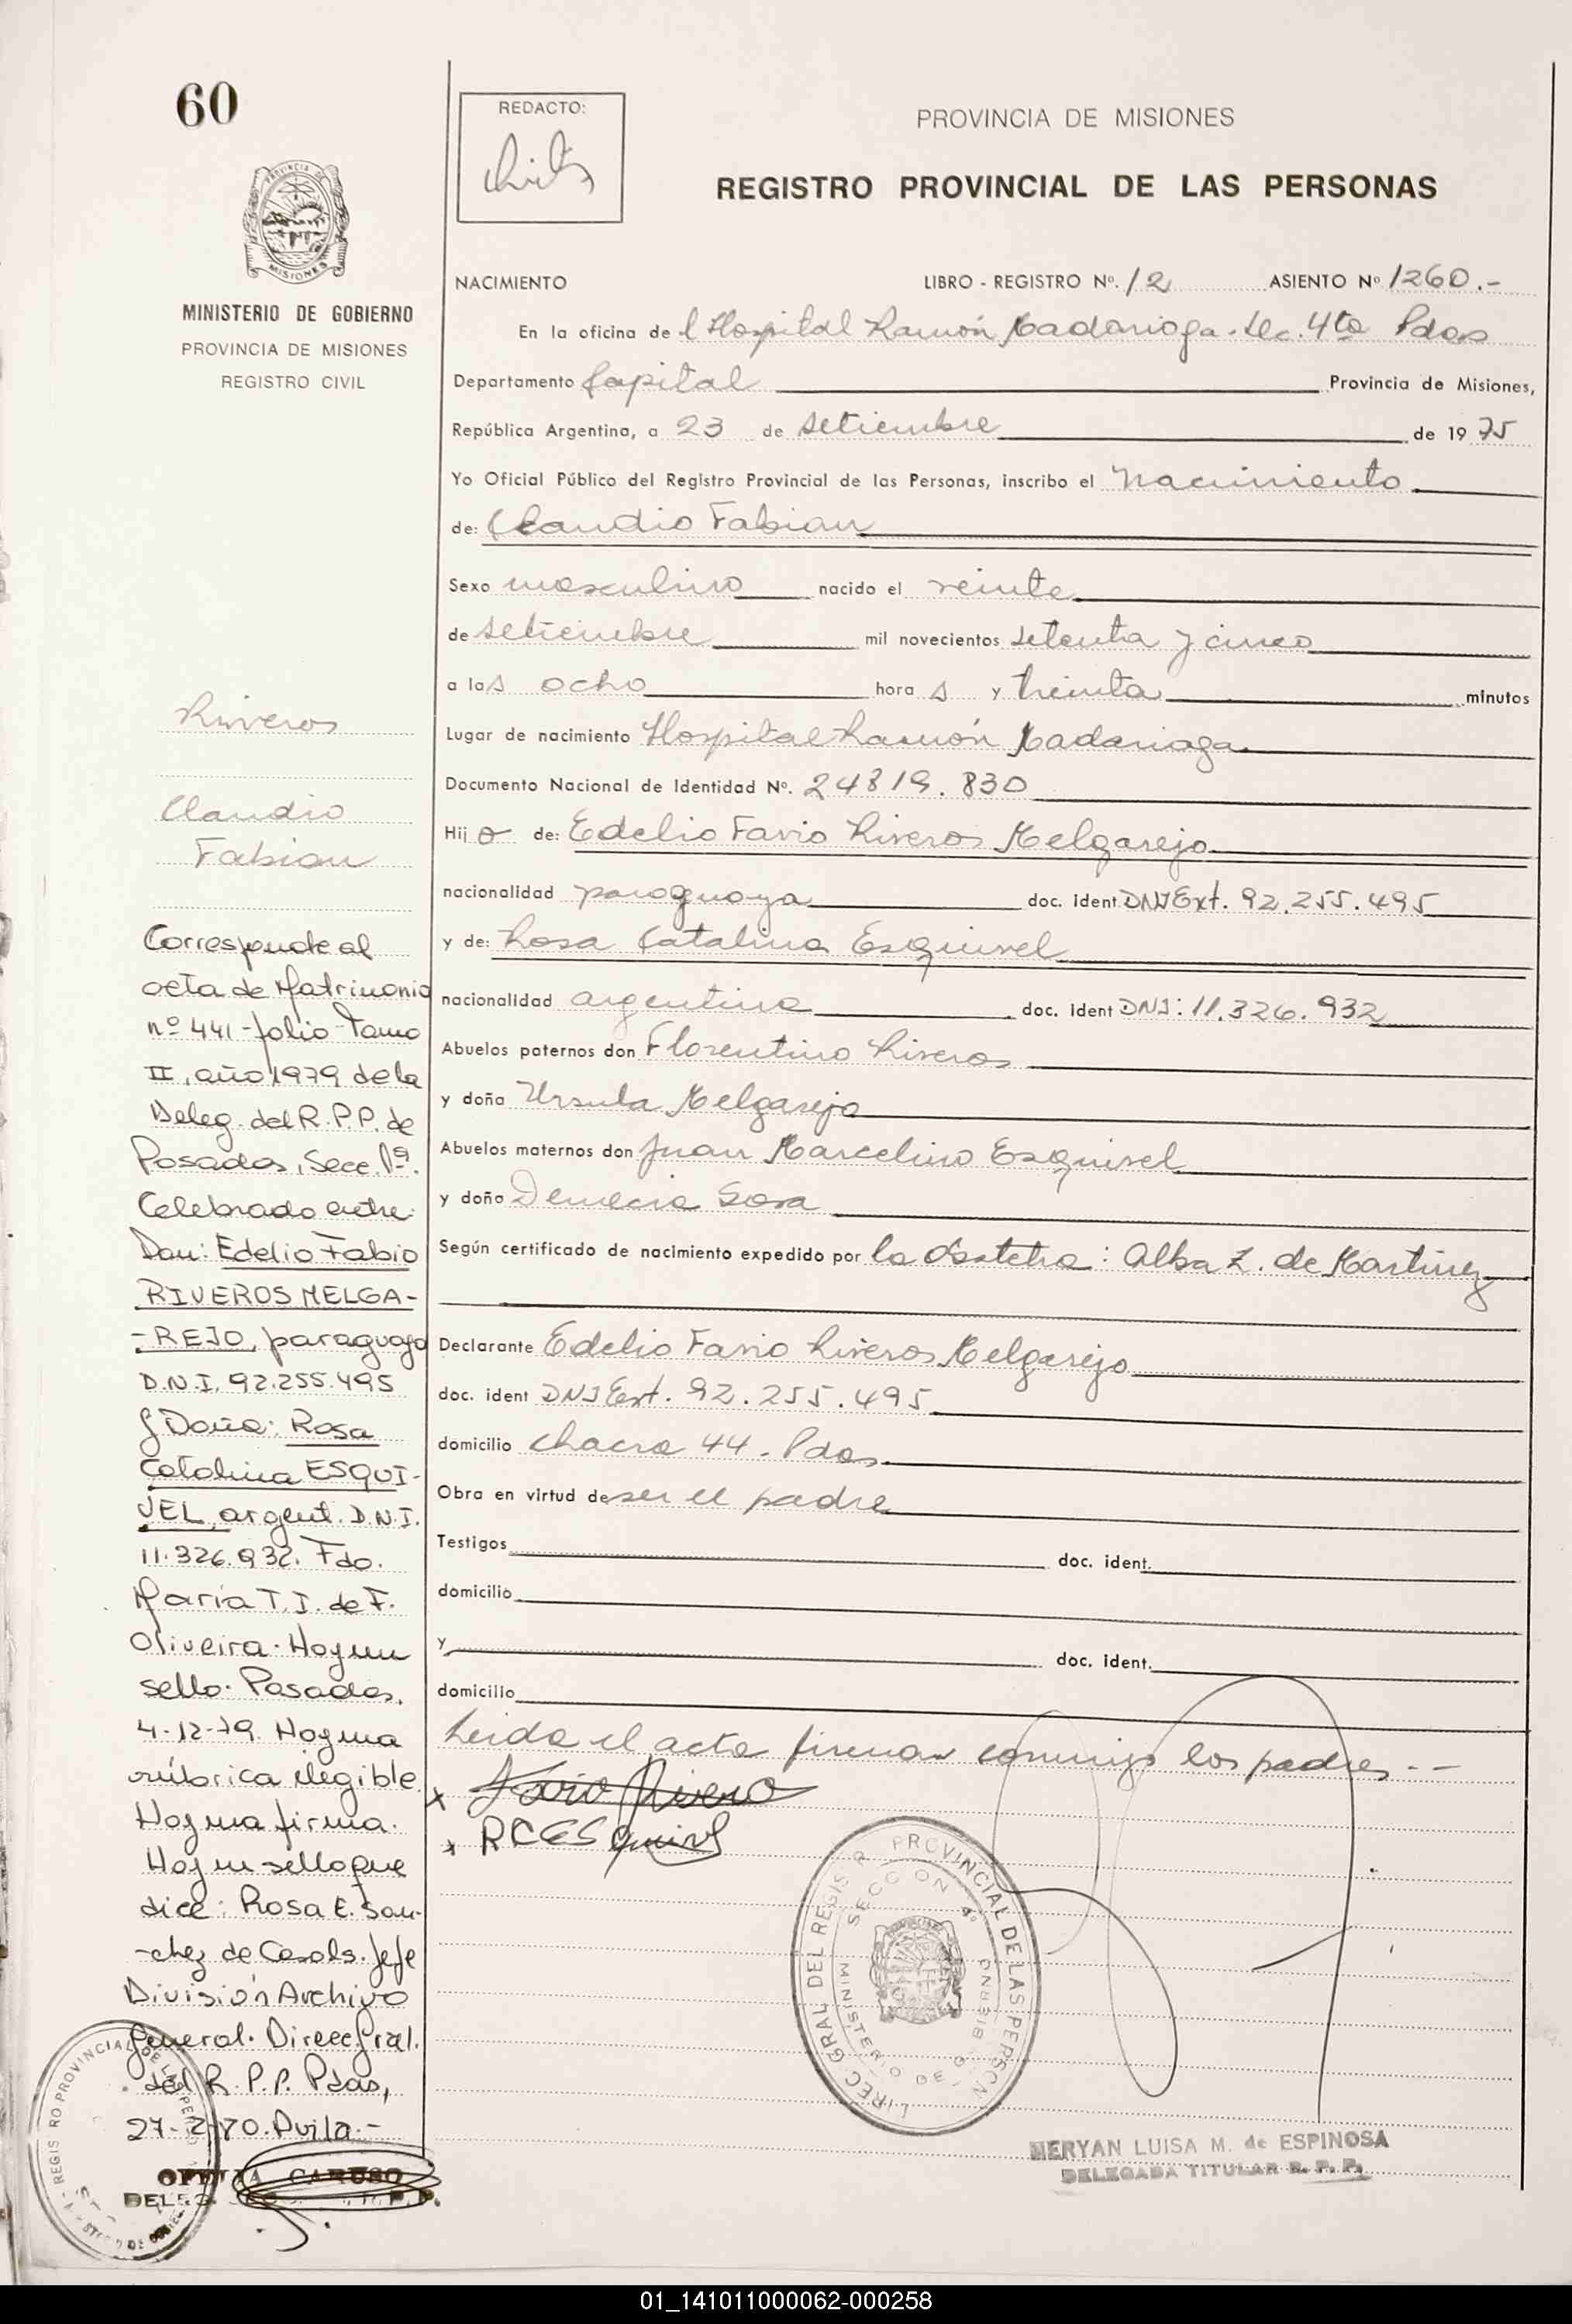 60
REDACTO:
PROVINCIA DE MISIONES
REGISTRO PROVINCIAL DE LAS PERSONAS
MISIONES
MINISTERIO DE GOBIERNO
PROVINCIA DE MISIONES
REGISTRO CIVIL
NACIMIENTO LIBRO - REGISTRO Nº. 12 ASIENTO Nº 1260.-
En la oficina de l Hospital Ramón Madariaga. Sec. 4ta Pdas
Departamento Capital Provincia de Misiones,
República Argentina, a 23 de Setiembre de 1975
Yo Oficial Público del Registro Provincial de las Personas, inscribo el Nacimiento
de: Claudio Fabian
Sexo masculino nacido el veinte
de Setiembre mil novecientos setenta y cinco
a las ocho hora s y treinta minutos
Lugar de nacimiento Hospital Ramón Madariaga
Documento Nacional de Identidad Nº. 24819.830
Hij o de: Edelio Favio Riveros Melgarejo
nacionalidad paraguaya doc. ident DNI Ext. 92.255.495
y de: Rosa Catalina Esquivel
nacionalidad argentina doc. ident DNI: 11.326.932
Abuelos paternos don Florentino Riveros
y doña Ursula Melgarejo
Abuelos maternos don Juan Marcelino Esquivel
y doña Demecia Sosa
Según certificado de nacimiento expedido por la obstetra: Alba Z. de Martinez
Declarante Edelio Favio Riveros Melgarejo
doc. ident DNI Ext. 92.255.495
domicilio chacra 44 - Pdas
Obra en virtud de ser el padre
Testigos doc. ident.
domicilio
y doc. ident.
domicilio
Leida el acta firman conmigo los padres--
x Favio Rivero
x RCESquivel
Riveros
Claudio
Fabian
Corresponde al
acta de Matrimonio
nº 441-folio-Tomo
II, año 1979 de la
Deleg. del R.P.P. de
Posadas, Secc. 1ª.
Celebrado entre:
Don: Edelio Fabio
RIVEROS MELGA-
-REJO, paraguayo
D.N.I. 92.255.495
y Doña: Rosa
Catalina ESQUI-
VEL, argent. D.N.I.
11.326.932. Fdo.
Maria T.I. de F.
Oliveira. Hay un
sello. Posadas,
4-12-79. Hay una
rúbrica ilegible.
Hay una firma.
Hay un sello que
dice: Rosa E. San-
-chez de Casals. Jefe
División Archivo
General. Direcc. Gral.
del R.P.P. Pdas,
CARUSO
DIREC GRAL DEL REGISTR PROVINCIAL DE LAS PERSON
SECCION 4º
MINISTERIO DE GOBIERNO
MERYAN LUISA M. de ESPINOSA
DELEGADA TITULAR R.P.P.
01_141011000062-000258